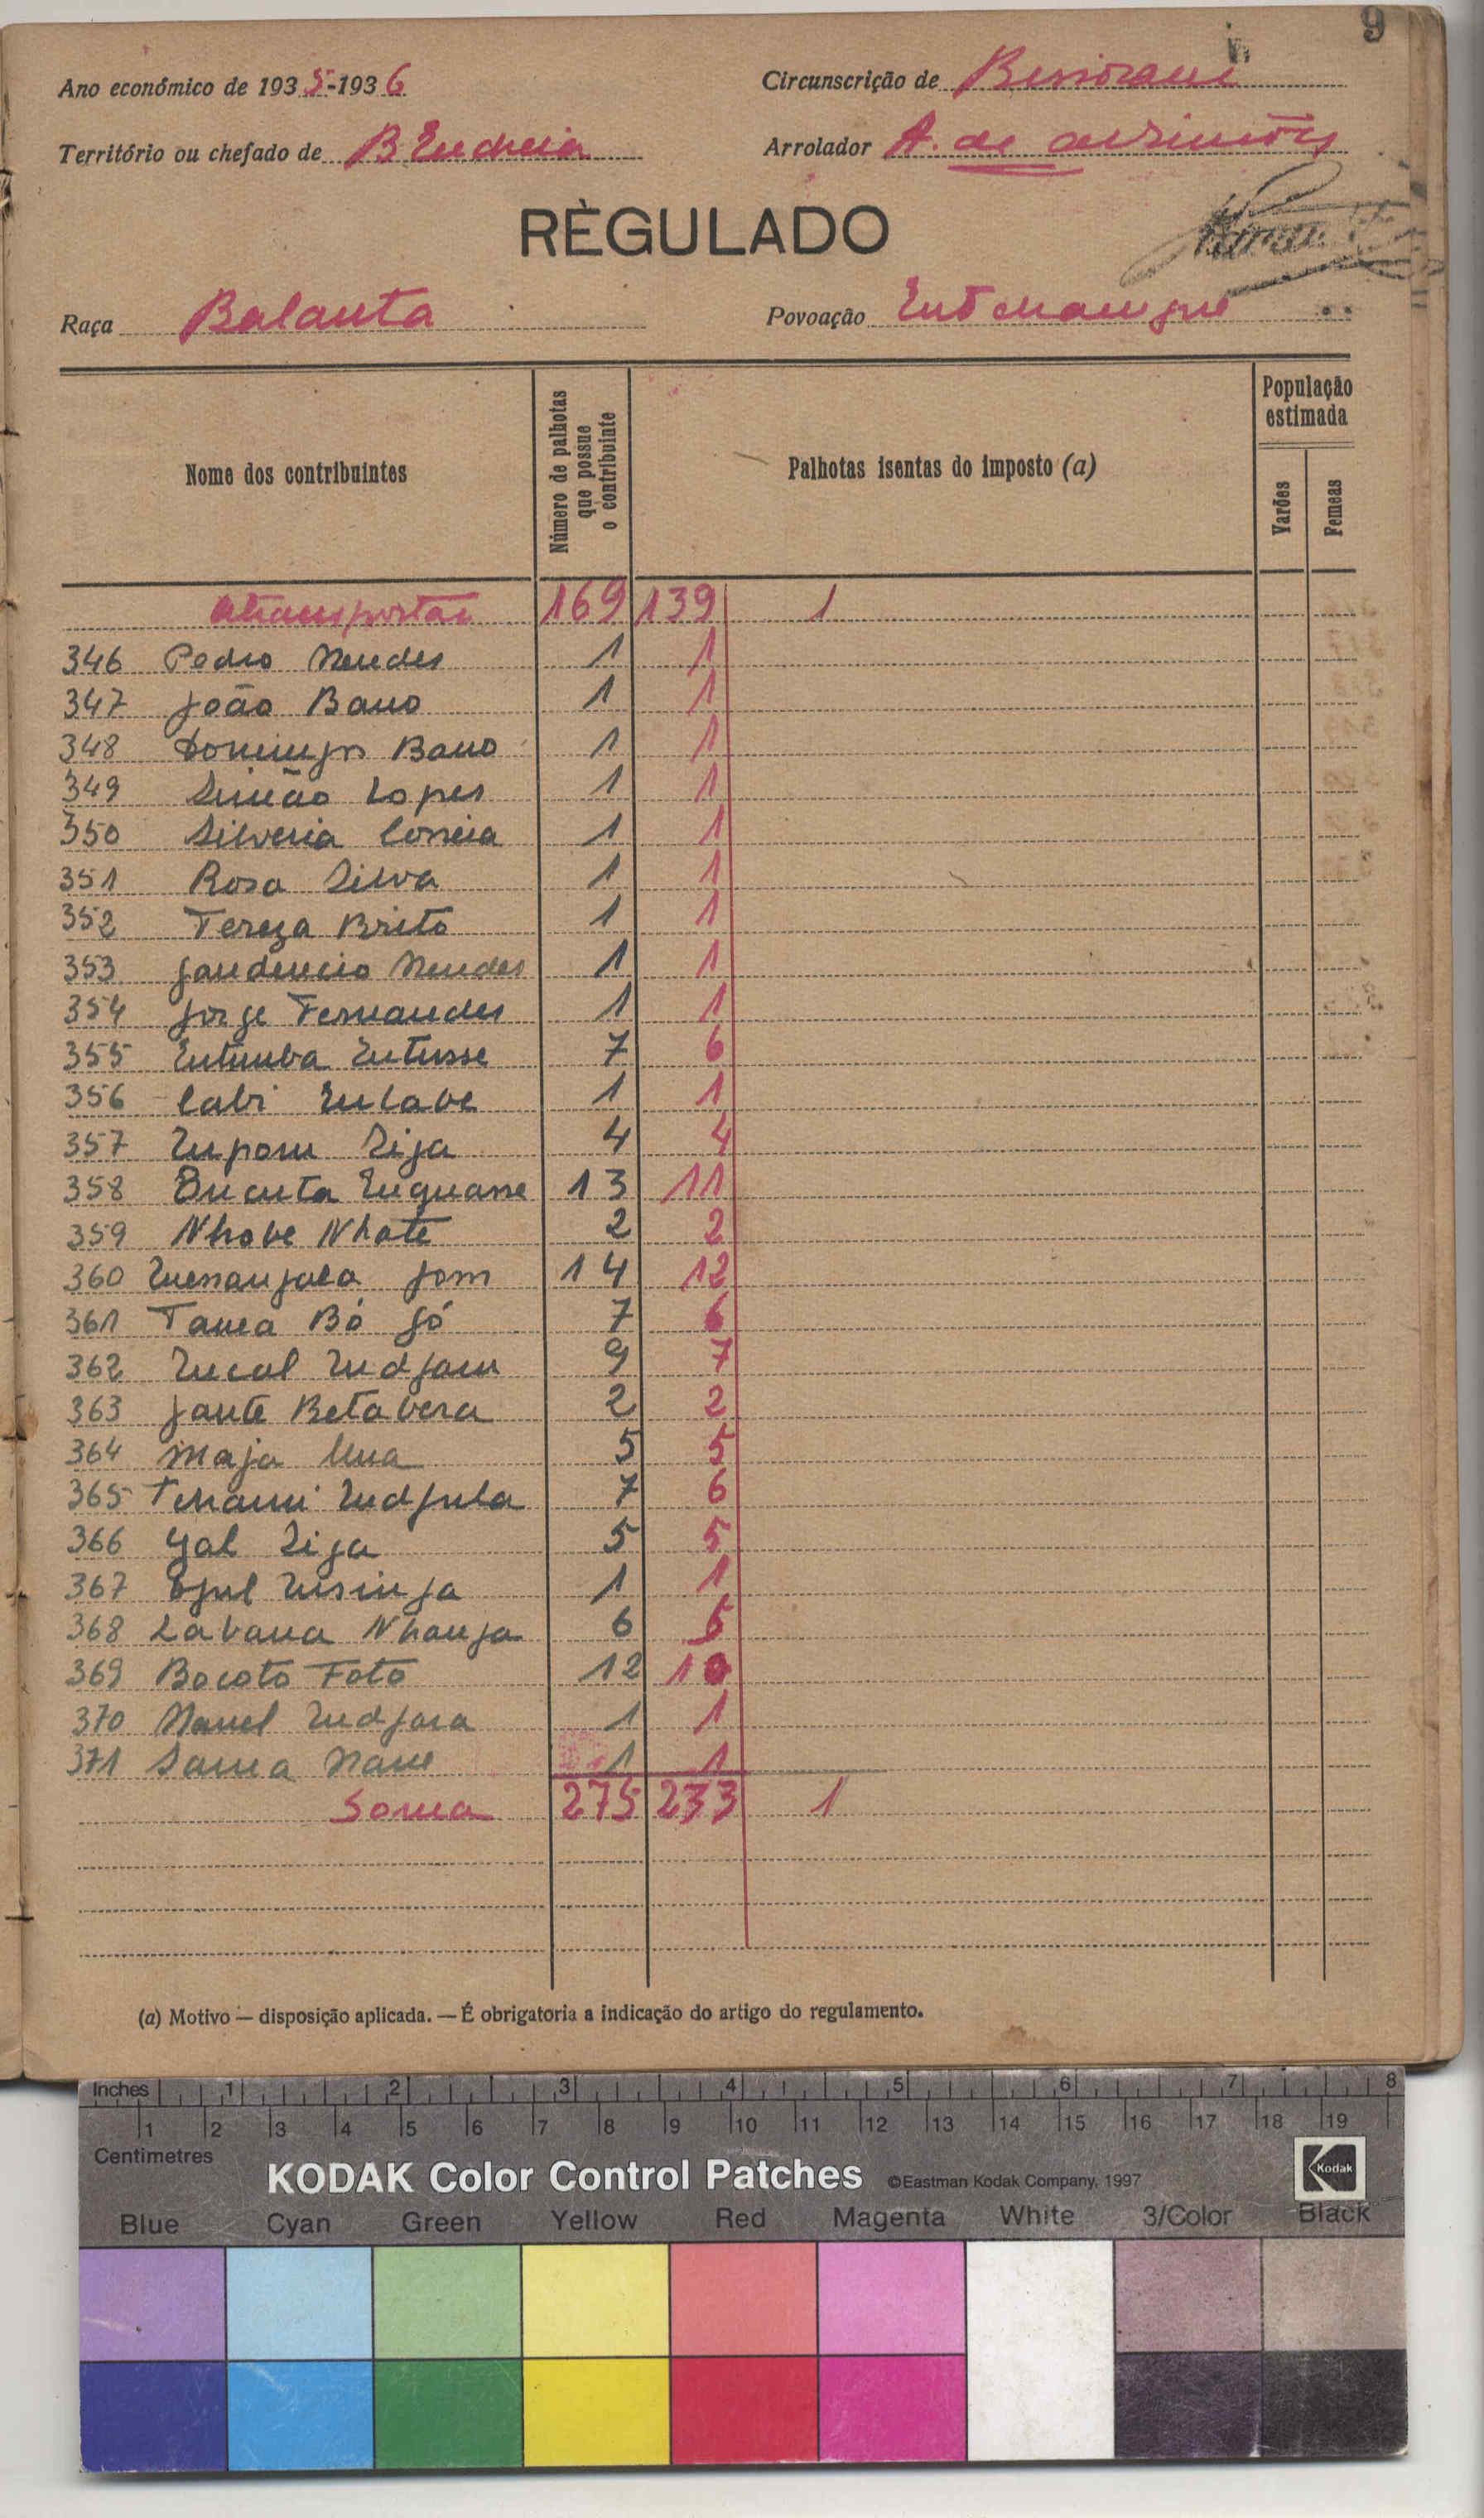 9
Ano económico de 1935-1936
Circunscrição de
Território ou chefado de B Encheia
Arrolador A. de
RÈGULADO
Raça Balanta
Povoação
Nome dos contribuintes
Número de palhotas que possue o contribuinte
Palhotas isentas do imposto (a)
População estimada
Varões
Femeas
A transportar 169 139 1
346 Pedro Mendes 1 1
347 João Bano 1 1
348 Domingos Bano 1 1
349 Simão Lopes 1 1
350 Silveria Correia 1 1
351 Rosa Silva 1 1
352 Tereza Brito 1 1
353 Gaudencio Mendes 1 1
354 Jorge Fernandes 1 1
355 Entumba Entusse 7 6
356 Cabi Enlabe 1 1
357 4 4
358 13 11
359 Nhobe Nhate 2 2
360 14 12
361 Tama Bó Gó 7 6
362 9 7
363 Jante Betabera 2 2
364 Maja 5 5
365 7 6
366 5 5
367 1 1
368 Labana Nhanga 6 5
369 Bocoto Foto 12 10
370 1 1
371 Sama Mane 1 1
Soma 275 233 1
(a) Motivo — disposição aplicada. — É obrigatoria a indicação do artigo do regulamento.
Inches 1 2 3 4 5 6 7 8
1 2 3 4 5 6 7 8 9 10 11 12 13 14 15 16 17 18 19
Centimetres
KODAK Color Control Patches ©Eastman Kodak Company, 1997 Kodak
Blue Cyan Green Yellow Red Magenta White 3/Color Black